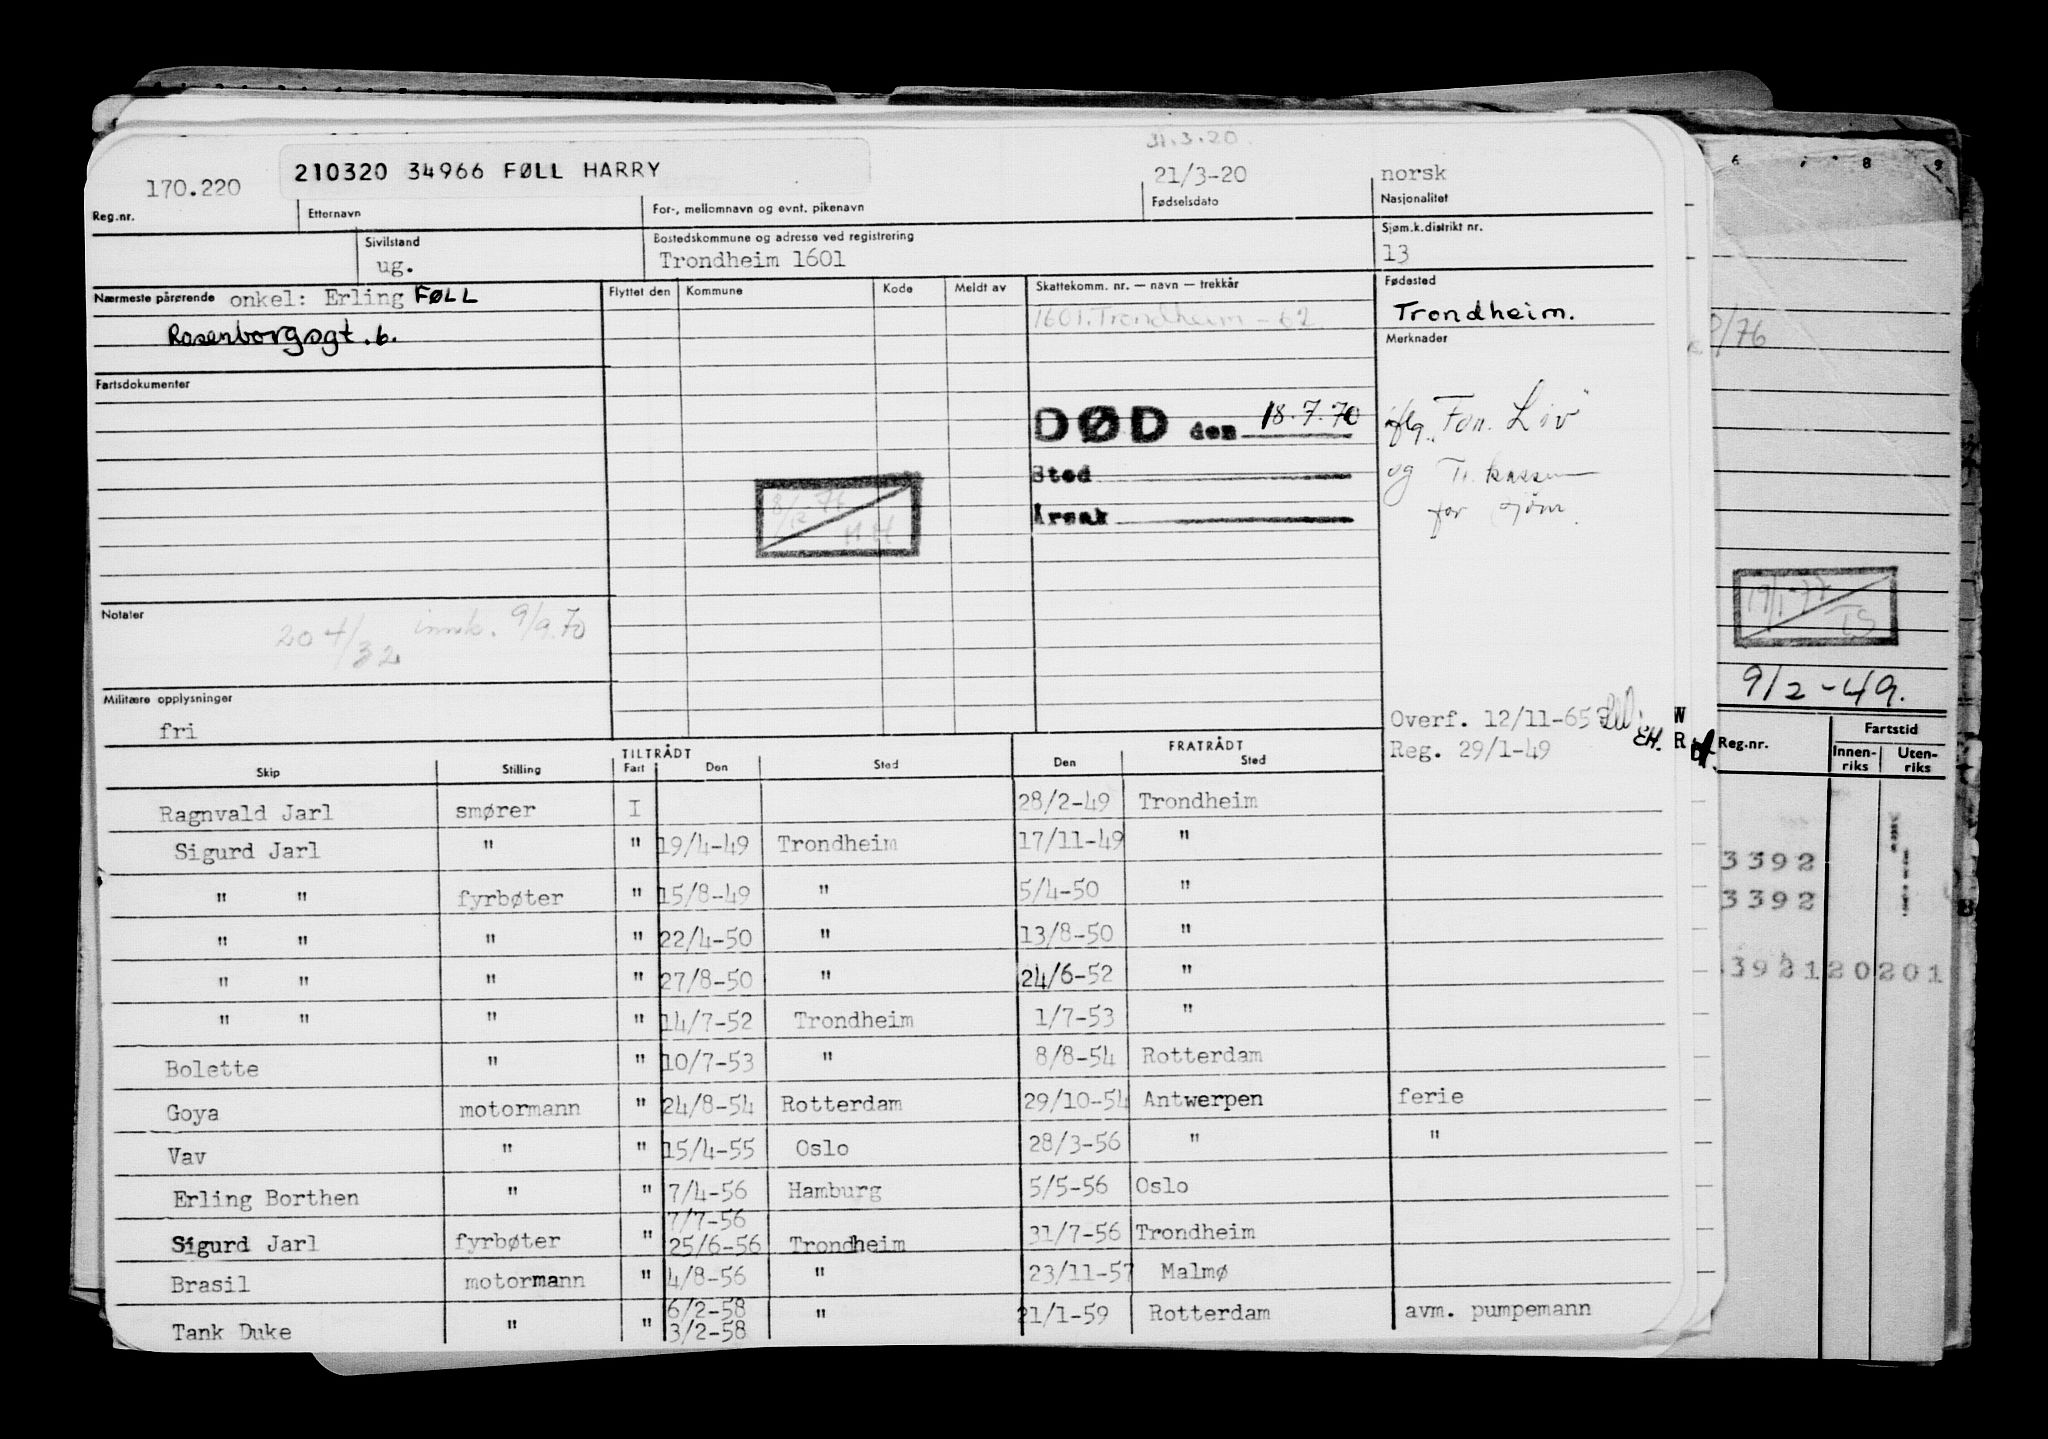 31.3.20.
170.220 210320 34966 FØLL HARRY 21/3-20 norsk
Reg.nr. Etternavn For-, mellomnavn og evnt. pikenavn Fødselsdato Nasjonalitet
Sivilstand Bostedskommune og adresse ved registrering Sjøm.k.distrikt nr.
ug. Trondheim 1601 13
Nærmeste pårørende onkel: Erling FØLL Flyttet den Kommune Kode Meldt av Skattekomm. nr. — navn — trekkår Fødested
1601 Trondheim - 62 Trondheim.
Rosenborgsgt. 6. Merknader
Fartsdokumenter
DØD den 18.7.70 iflg. "Fon. Liv"
Sted og Tr. kassen
Årsak for sjøm.
8/12 76
HH
Notater
204/32 innk. 9/9.70
Militære opplysninger
fri
Overf. 12/11-65
Reg. 29/1-49 EH.
W
R
TILTRÅDT FRATRÅDT
Skip Stilling Fart Den Sted Den Sted
Ragnvald Jarl smører I 28/2-49 Trondheim
Sigurd Jarl " " 19/4-49 Trondheim 17/11-49 "
" " fyrbøter " 15/8-49 " 5/4-50 "
" " " " 22/4-50 " 13/8-50 "
" " " " 27/8-50 " 24/6-52 "
" " " " 14/7-52 Trondheim 1/7-53 "
Bolette " " 10/7-53 " 8/8-54 Rotterdam
Goya motormann " 24/8-54 Rotterdam 29/10-54 Antwerpen ferie
Vav " " 15/4-55 Oslo 28/3-56 " "
Erling Borthen " " 7/4-56 Hamburg 5/5-56 Oslo
7/7-56
Sigurd Jarl fyrbøter " 25/6-56 Trondheim 31/7-56 Trondheim
Brasil motormann " 4/8-56 " 23/11-57 Malmø
6/2-58
Tank Duke " " 3/2-58 " 21/1-59 Rotterdam avm. pumpemann
6 8 9
/76
19/1-77
ES
9/2-49.
Reg.nr. Fartstid
Innen-riks Uten-riks
3392
3392
3921 20 201